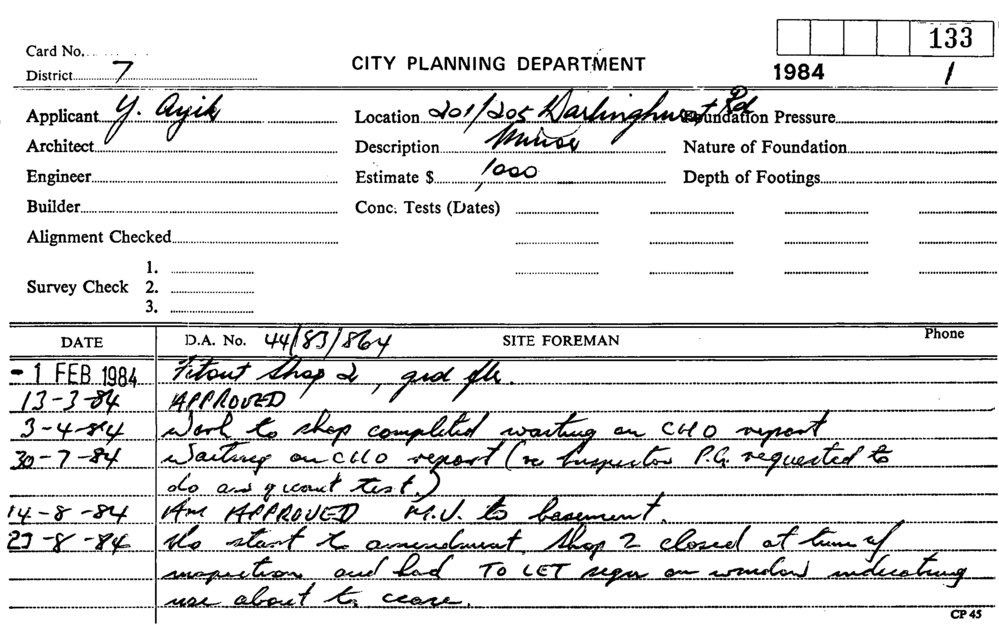 133
Card No.
CITY PLANNING DEPARTMENT
District 7
1984 1
Applicant Y. Ayik Location 201/205 Darlinghurst Rd Foundation Pressure
Architect Description Minor Nature of Foundation
Engineer Estimate $ 1,000 Depth of Footings
Builder Conc. Tests (Dates)
Alignment Checked
1.
Survey Check 2.
3.
DATE D.A. No. 44/83/864 SITE FOREMAN Phone
- 1 FEB 1984 Fitout Shop 2, grd flr.
13-3-84 APPROVED
3-4-84 Work to shop completed waiting on CHO report
30-7-84 Waiting on CHO report (re Inspector P.G. requested to
do test.)
14-8-84 Am APPROVED M.V. to basement.
23-8-84 No start to amendment. Shop 2 closed at time of
inspection and had TO LET sign on window indicating
use about to cease.
CP 45